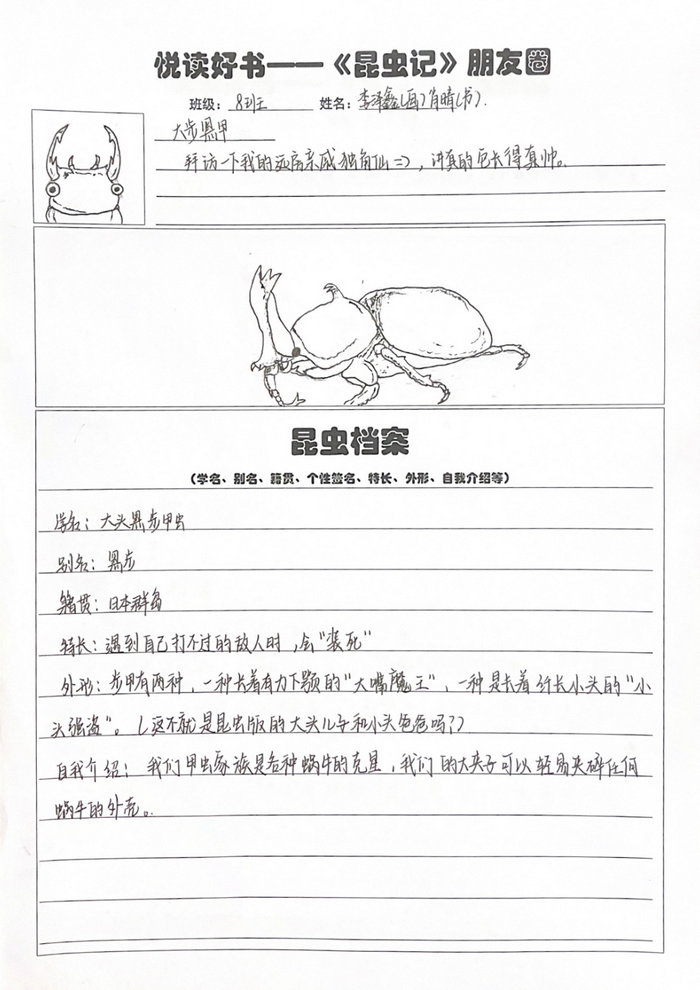 悦读好书——《昆虫记》朋友圈
班级：8班 姓名：李泽鑫(画)肖晴(书).
大步黑甲
拜访一下我的远房亲戚独角仙=)，讲真的它长得真帅。
昆虫档案
（学名、别名、籍贯、个性签名、特长、外形、自我介绍等）
学名：大头黑步甲虫
别名：黑步
籍贯：日本群岛
特长：遇到自己打不过的敌人时，会“装死”
外形：步甲有两种，一种长着有力下颚的“大嘴魔王”，一种是长着纤长小头的“小
头强盗”。（这不就是昆虫版的大头儿子和小头爸爸吗？）
自我介绍：我们甲虫家族是各种蜗牛的克星，我们的大夹子可以轻易夹碎任何
蜗牛的外壳。